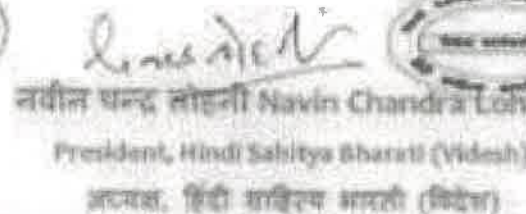 नवीन चन्द्र लोहनी Navin Chandra Loh
President, Hindi Sahitya Bharati (Videsh)
अध्यक्ष, हिंदी साहित्य भारती (विदेश)